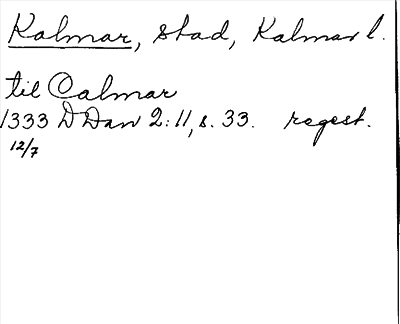 Kalmar, stad, Kalmar l.
til Calmar
1333 DDan 2:11, s. 33. regest.
12/7